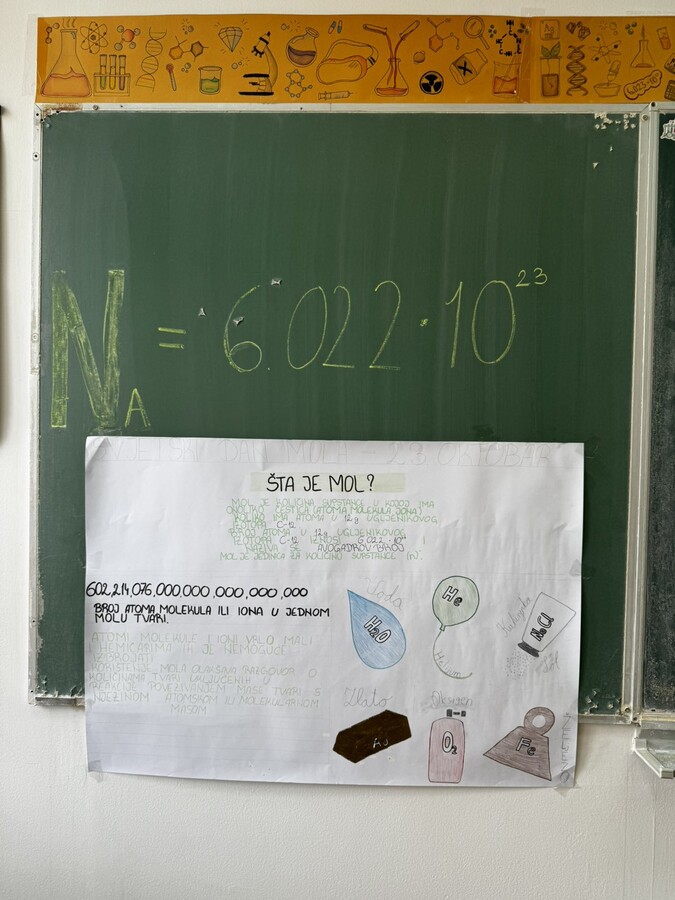 N_A = 6.022 · 10²³
SVJETSKI DAN MOLA - 23. OKTOBAR
ŠTA JE MOL?
MOL JE KOLIČINA SUPSTANCE U KOJOJ IMA
ONOLIKO ČESTICA (ATOMA, MOLEKULA, JONA)
KOLIKO IMA ATOMA U 12g UGLJENIKOVOG
IZOTOPA C-12
BROJ ATOMA U 12g UGLJENIKOVOG
IZOTOPA C-12 IZNOSI 6.022·10²³ I
NAZIVA SE AVOGADROV BROJ
MOL JE JEDINICA ZA KOLIČINU SUPSTANCE (n).
602,214,076,000,000,000,000,000
BROJ ATOMA MOLEKULA ILI IONA U JEDNOM
MOLU TVARI.
ATOMI MOLEKULE I IONI VRLO MALI
I HEMIČARIMA IH JE NEMOGUĆE
IZBROJATI
KORIŠTENJE MOLA OLAKŠAVA RAZGOVOR O
KOLIČINAMA TVARI UKLJUČENIH U
REAKCIJE POVEZIVANJEM MASE TVARI S
NJEZINOM ATOMSKOM ILI MOLEKULARNOM
MASOM
Voda
H₂O
He
Helium
Kuhinjska
NaCl
sol
Zlato
AU
O₂
Fe